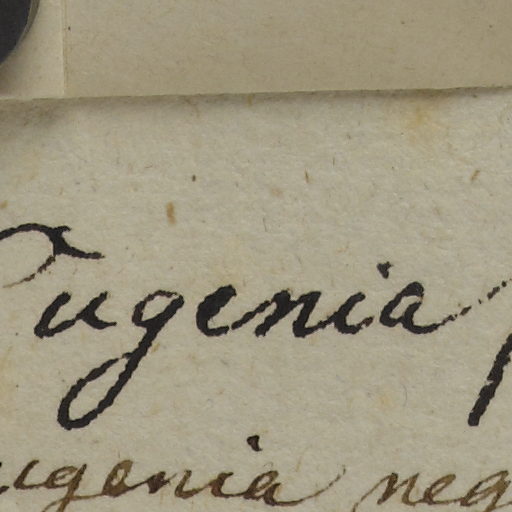 Eugenia
eugenia neg